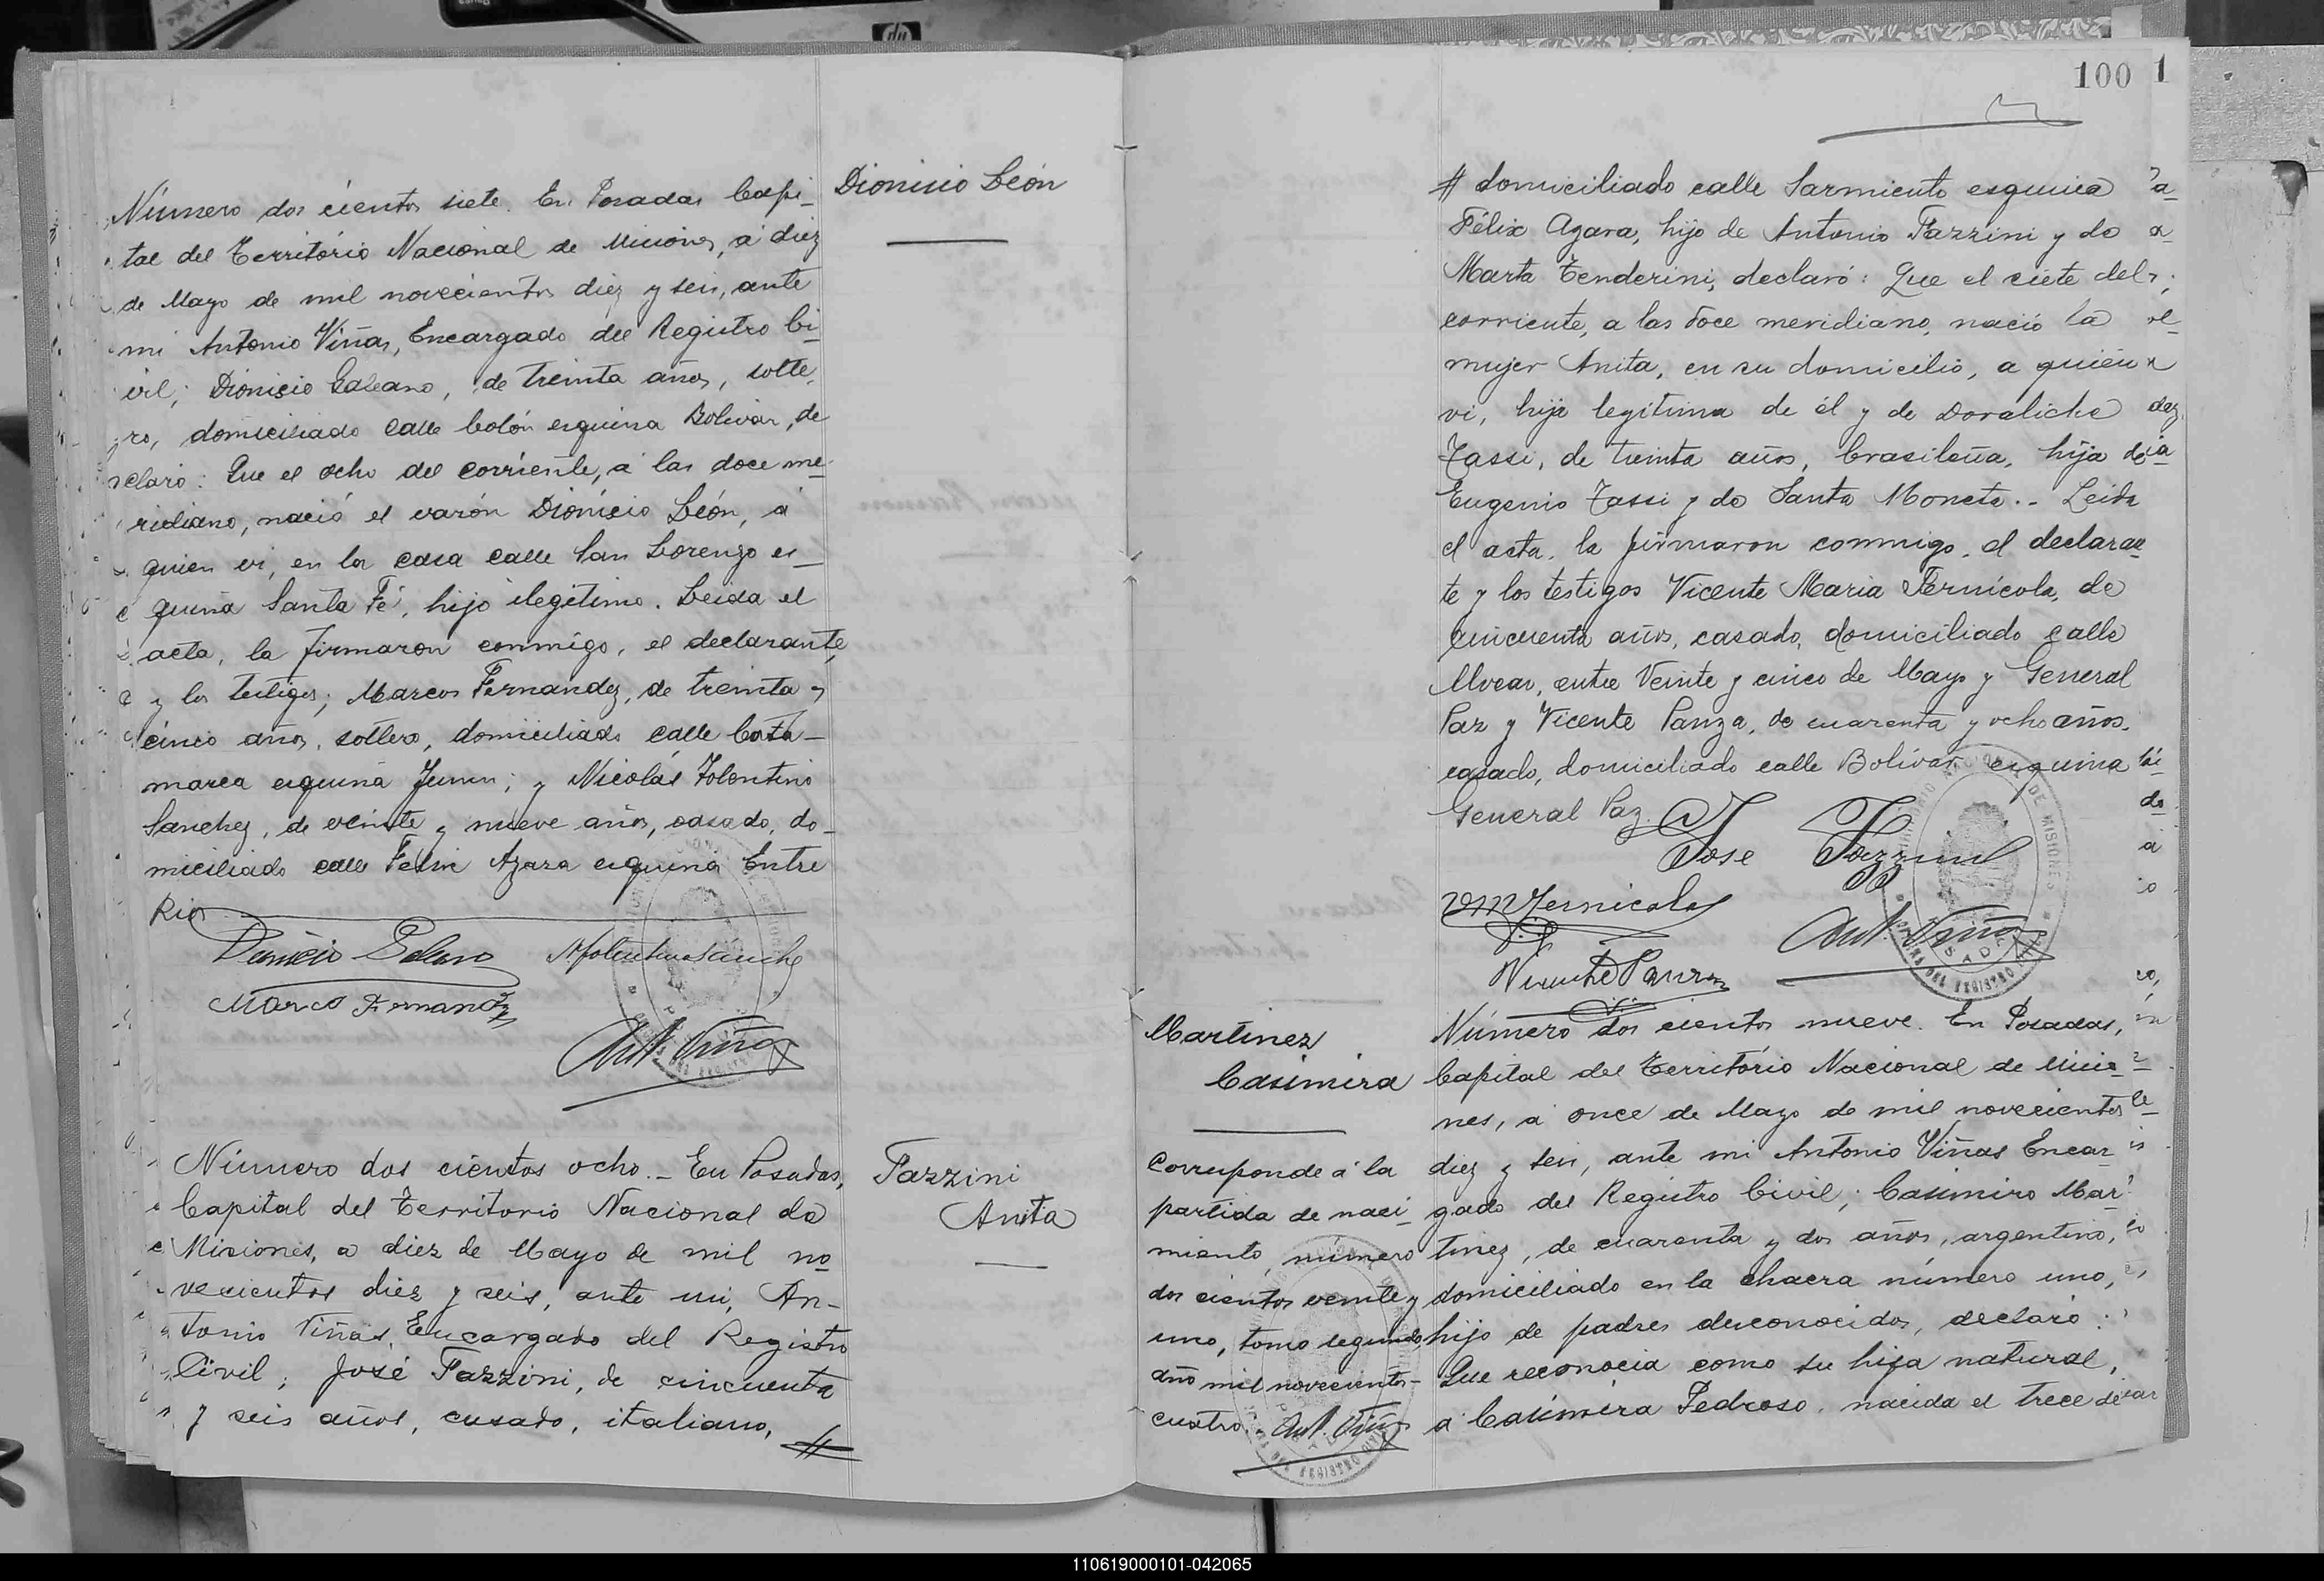 Dionicio León
Número dos cientos siete. En Posadas Capi-
tal del Território Nacional de Misiones, á diez
de Mayo de mil novecientos diez y seis, ante
mi Antonio Viñas, Encargado del Registro Ci-
vil; Dionisio Galeano, de treinta años, solte-
ro, domiciliado calle Colón esquina Bolivar, de
claró: Que el ocho del corriente, á las doce me-
ridiano, nació el varón Dionisio León, á
quien vi, en la casa calle San Lorenzo es-
quina Santa Fé, hijo ilegitimo. Leida el
acta, la firmaron conmigo, el declarante,
y los testigos; Marcos Fernandez, de treinta y
cinco años, soltero, domiciliado calle Cata-
marca esquina Junin; y Nicolás Tolentino
Sanchez, de veinte y nueve años, casado, do-
miciliado calle Felix Azara esquina Entre
Rios
Marco Fernandez
Ant. Viñas
Fazzini
Anita
Número dos cientos ocho.- En Posadas,
Capital del Territorio Nacional de
Misiones, a diez de Mayo de mil no
vecientos diez y seis, ante mi, An-
tonio Viñas, Encargado del Registro
Civil; José Fazzini, de cincuenta
y seis años, casado, italiano, #
100 1
# domiciliado calle Sarmiento esquina
Félix Azara, hijo de Antonio Fazzini y de
Marta Tenderini, declaró: Que el siete del
corriente, a las doce meridiano, nació la
mujer Anita, en su domicilio, a quien
vi, hija legítima de él y de Doraliche
Tassi, de treinta años, brasileña, hija de
Eugenio Tassi y de Santa Moneta.- Leida
el acta, la firmaron conmigo, el declaran
te y los testigos Vicente Maria Fernícola, de
cincuenta años, casado, domiciliado calle
Alvear, entre Veinte y cinco de Mayo y General
Paz y Vicente Panza, de cuarenta y ocho años,
casado, domiciliado calle Bolívar esquina
General Paz.
Jose Fazzini
VM Fernicola
Ant. Viñas
Vicente Panza
Martinez
Casimira
Corresponde á la
partida de naci-
miento, número
dos cientos veinte y
uno, tomo segundo,
año mil novecientos
cuatro. Ant. Viñas
Número dos cientos nueve. En Posadas,
Capital del Território Nacional de Misio-
nes, á once de Mayo de mil novecientos
diez y seis, ante mi Antonio Viñas Encar-
gado del Registro Civil; Casimiro Mar-
tinez, de cuarenta y dos años, argentino,
domiciliado en la chacra número uno,
hijo de padres desconocidos, declaró:
Que reconocia como su hija natural,
a Casimira Pedroso, nacida el trece de
110619000101-042065